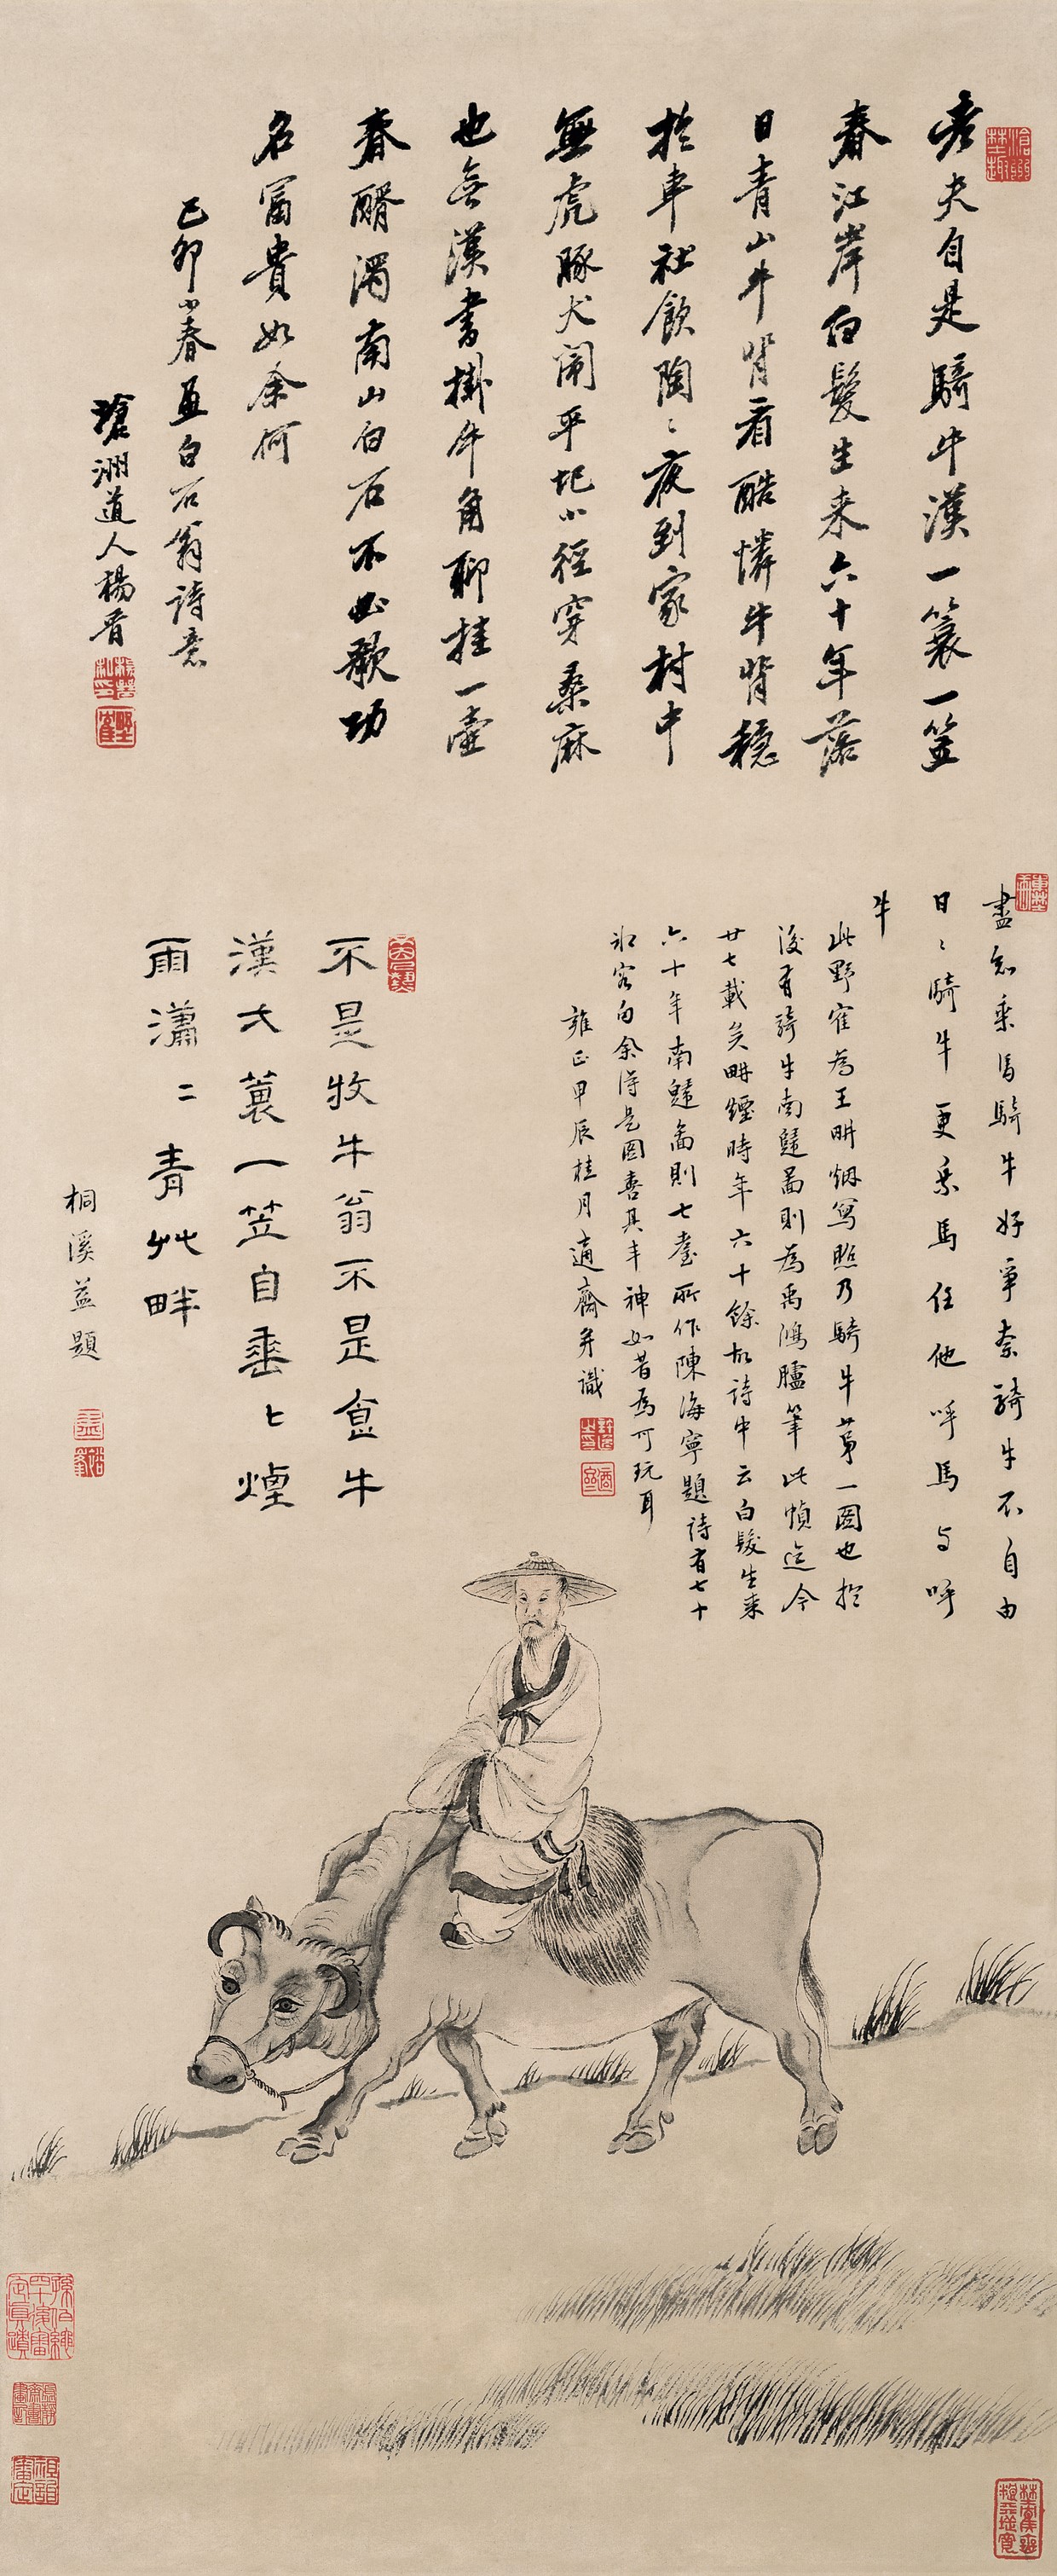 老夫自是騎牛漢一蓑一笠
春江岸白髮生來六十年落
日青山牛背看酷憐牛背穩
於車社飲陶〻夜到家村中
無虎豚犬鬧平圯小徑穿桑麻
也無漢書掛牛角聊挂一壺
春醑濁南山白石不必歌功
名富貴如余何
己卯小春畫白石翁詩意
滄洲道人楊晉
盡知乘馬騎牛好爭柰騎牛不自由
日〻騎牛更乘馬任他呼馬與呼
牛
此野寉為王畊烟寫照乃騎牛苐一圖也於
後有騎牛南歸畵則為禹鴻臚筆此幀迄今
廿七載矣畊煙時年六十餘故詩中云白髮生來
六十年南歸畵則七耋所作陳海寧題詩有七十
客白余得是圖喜其丰神如昔為可玩耳
雍正甲辰桂月適齋并識
不是牧牛翁不是食牛
漢大蓑一笠自垂七煙
雨瀟二青艸畔
桐溪益題